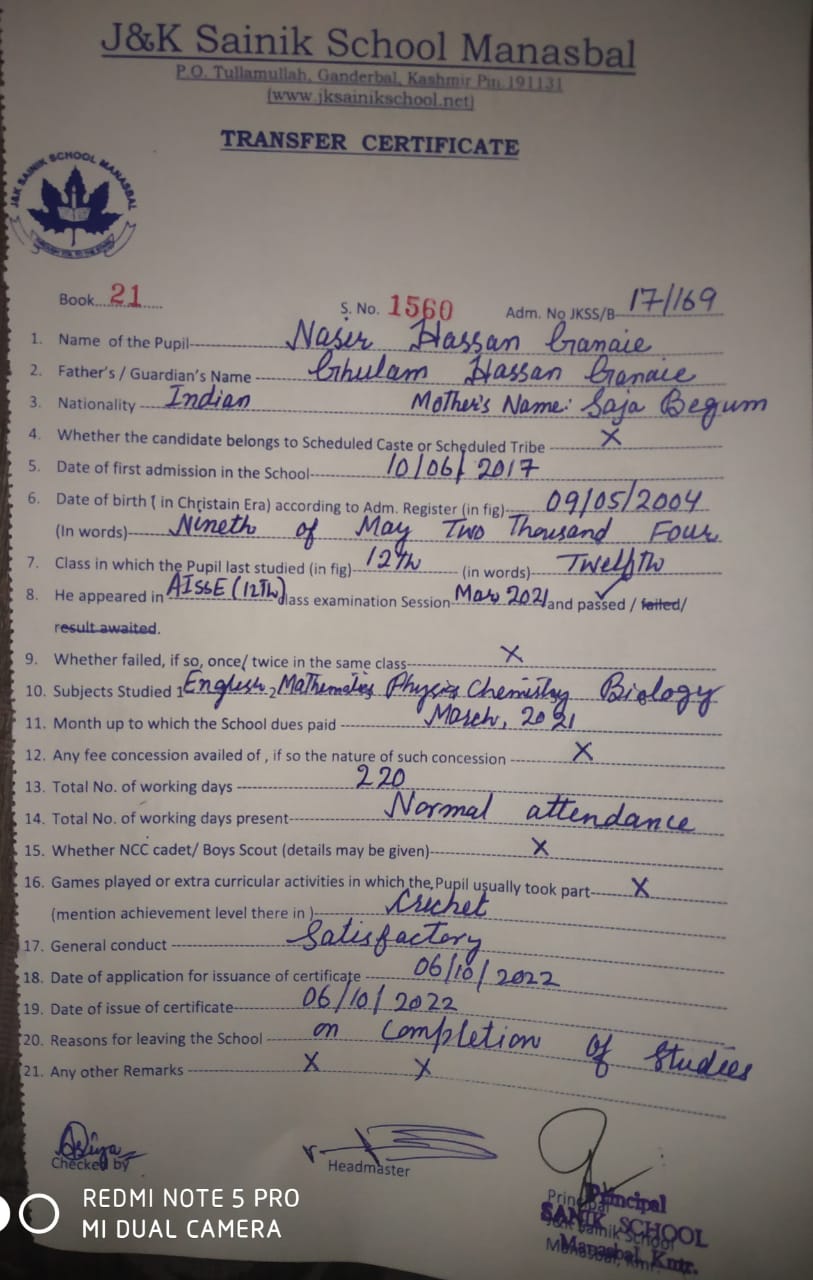 J&K Sainik School Manasbal
P.O. Tullamullah, Ganderbal, Kashmir Pin 191131
(www.jksainikschool.net)
TRANSFER CERTIFICATE
J&K SAINIK SCHOOL MANASBAL
Book 21 S. No. 1560 Adm. No JKSS/B 17/169
1. Name of the Pupil Naser Hassan Ganaie
2. Father's / Guardian's Name Ghulam Hassan Ganaie
3. Nationality Indian Mother's Name: Saja Begum
4. Whether the candidate belongs to Scheduled Caste or Scheduled Tribe X
5. Date of first admission in the School 10/06/2017
6. Date of birth ( in Christain Era) according to Adm. Register (in fig) 09/05/2004
(In words) Nineth of May Two Thousand Four
7. Class in which the Pupil last studied (in fig) 12th (in words) Twelfth
8. He appeared in AISSE (12Th) lass examination Session Mar 2021 and passed / failed/
result awaited.
9. Whether failed, if so, once/ twice in the same class X
10. Subjects Studied 1 English 2 Mathematics Physics Chemistry Biology
11. Month up to which the School dues paid March, 2021
12. Any fee concession availed of , if so the nature of such concession X
13. Total No. of working days 220
14. Total No. of working days present Normal attendance
15. Whether NCC cadet/ Boys Scout (details may be given) X
16. Games played or extra curricular activities in which the Pupil usually took part X
(mention achievement level there in ) Cricket
17. General conduct Satisfactory
18. Date of application for issuance of certificate 06/10/2022
19. Date of issue of certificate 06/10/2022
20. Reasons for leaving the School on Completion of Studies
21. Any other Remarks X X
Checked by
Headmaster
Principal
J&K Sainik School
Manasbal, Kmr.
Principal
SANIK SCHOOL
Manasbal, Kmr.
REDMI NOTE 5 PRO
MI DUAL CAMERA